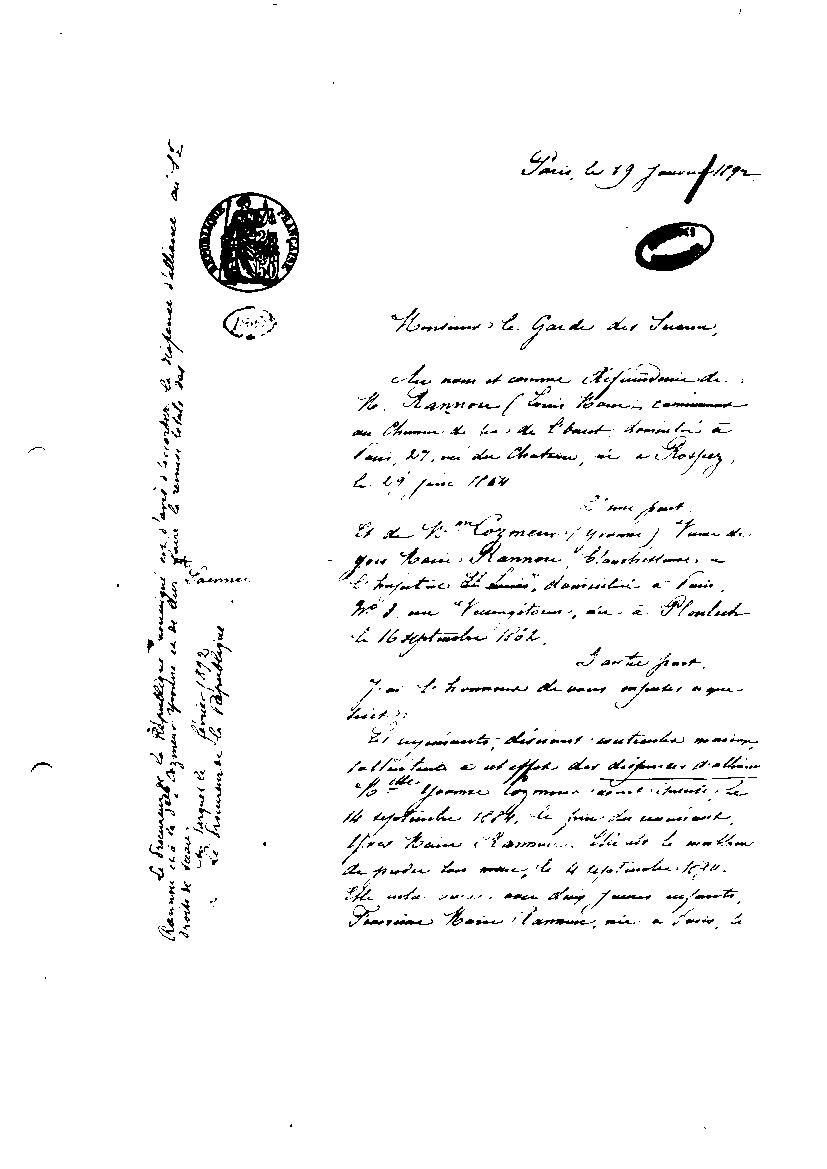 Paris, le 19 Janvier 1892
RÉPUBLIQUE FRANÇAISE
Monsieur le Garde des Sceaux,
Au nom et comme Référendaire de
M. Rannou (Louis Marie),
au Chemin de fer de l'Ouest, domicilié à
Paris, 27, rue du Chateau, né à Rospez,
le 29 juin 1864
D'une part.
Et de Mme Cozmeur (Yvonne) Veuve de
Yves Marie Rannou, Blanchisseuse à
l'hospice St Louis, domiciliée à Paris,
No 8 rue Vercingétorix, née à
le 16 septembre 1862,
D'autre part,
J'ai l'honneur de vous exposer ce que
suit :
Les requérants, désirant contracter mariage,
sollicitent à cet effet des dispenses d'alliance
Melle Yvonne Cozmeur avait épousé, le
14 septembre 1884, le frère du requérant,
Yves Marie Rannou. Elle eut le malheur
de perdre son mari, le 4 septembre 1890.
Elle resta veuve avec deux jeunes enfants,
Francine Marie Rannou, née à Paris, le
Le Procureur de la République soussigné est d'avis d'accorder la dispense d'alliance au Sr
Rannou et à la Dme Cozmeur Yvonne et de leur faire la remise totale des
droits de sceau.
Paris
le février 1892
Le Procureur de la République